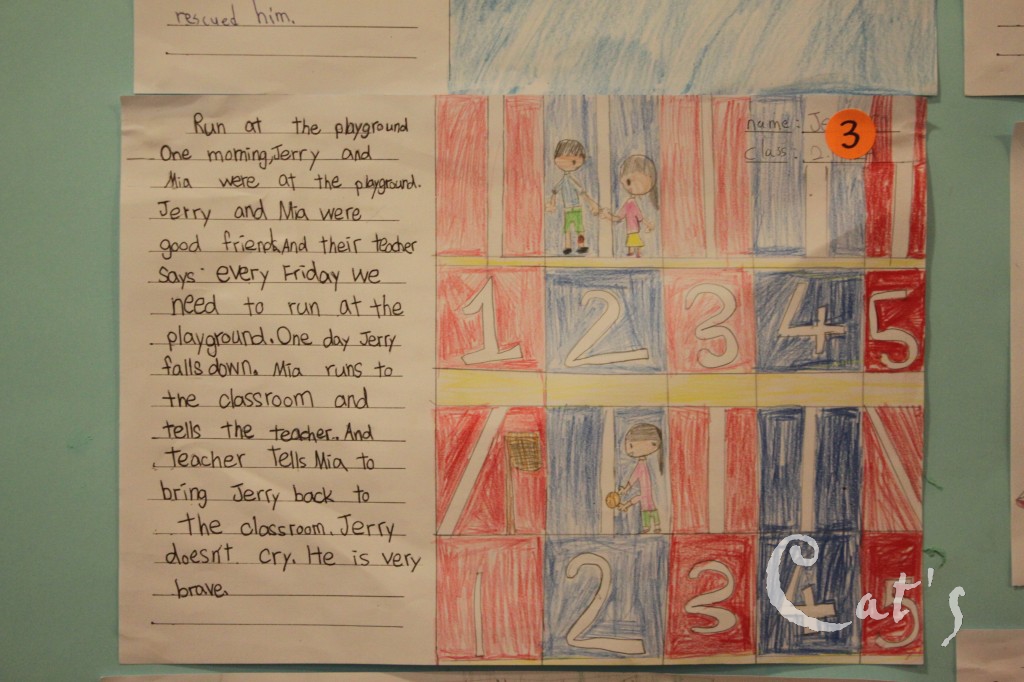 rescued him.
Run at the playground
One morning, Jerry and
Mia were at the playground.
Jerry and Mia were
good friend. And their teacher
says: every Friday we
need to run at the
playground. One day Jerry
falls down. Mia runs to
the classroom and
tells the teacher. And
teacher tells Mia to
bring Jerry back to
the classroom. Jerry
doesn't cry. He is very
brave.
name:
3
class: 2.
1 2 3 4 5
1 2 3 4 5
Cat's